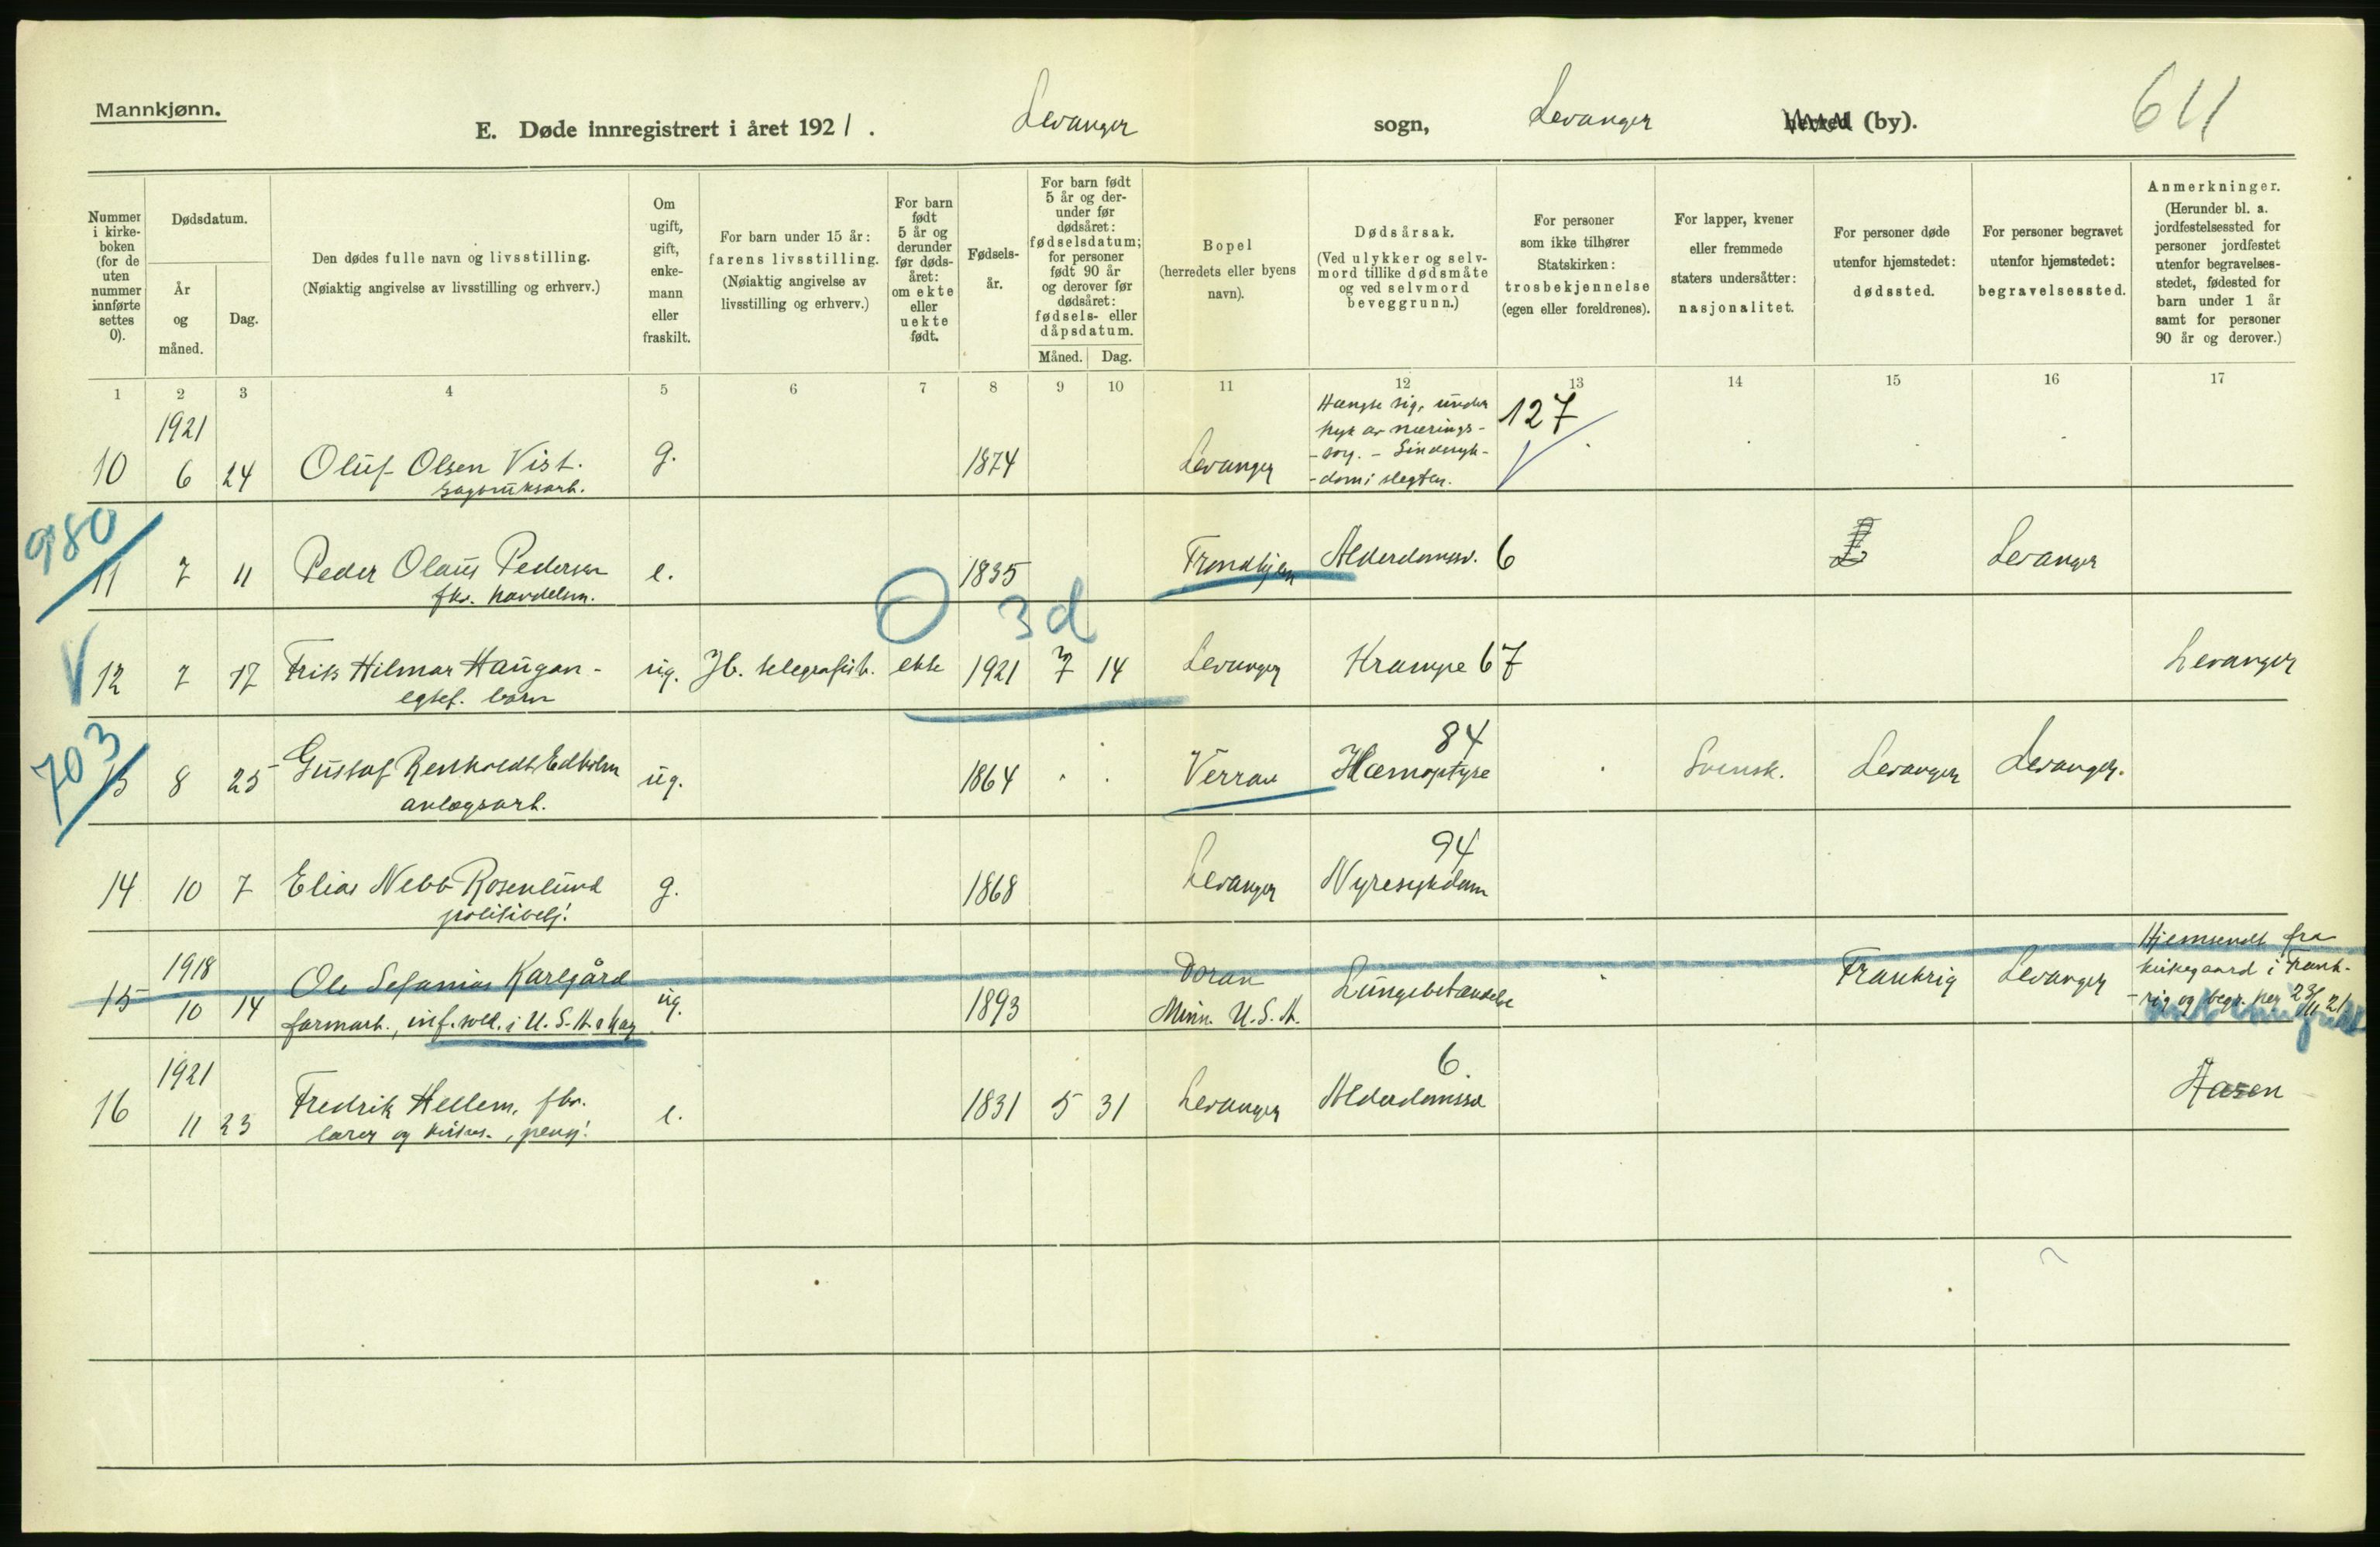 Mannkjønn.
E. Døde innregistrert i året 1921. Levanger sogn, Levanger herred (by). 611
Nummer i kirkeboken (for de uten nummer innførte settes 0).
Dødsdatum.
År og måned.
Dag.
Den dødes fulle navn og livsstilling.
(Nøiaktig angivelse av livsstilling og erhverv.)
Om ugift, gift, enkemann eller fraskilt.
For barn under 15 år: farens livsstilling.
(Nøiaktig angivelse av livsstilling og erhverv.)
For barn født 5 år og derunder før dødsåret: om ekte eller uekte født.
Fødselsår.
For barn født 5 år og derunder før dødsåret: fødselsdatum; for personer født 90 år og derover før dødsåret: fødsels- eller dåpsdatum.
Måned. Dag.
Bopel
(herredets eller byens navn).
Dødsårsak.
(Ved ulykker og selvmord tillike dødsmåte og ved selvmord beveggrunn.)
For personer som ikke tilhører Statskirken: trosbekjennelse (egen eller foreldrenes).
For lapper, kvener eller fremmede staters undersåtter: nasjonalitet.
For personer døde utenfor hjemstedet: dødssted.
For personer begravet utenfor hjemstedet: begravelsessted.
Anmerkninger.
(Herunder bl. a. jordfestelsessted for personer jordfestet utenfor begravelsesstedet, fødested for barn under 1 år samt for personer 90 år og derover.)
1 2 3 4 5 6 7 8 9 10 11 12 13 14 15 16 17
1921
10 6 24 Oluf Olsen Vist. g. 1874 Levanger Hængte sig, under tryk av nærings- 127
-sorg. - Sindssyk-
-dom i slegten.
sagbruksarb.
980
11 7 11 Peder Olaus Pedersen e. 1835 Trondhjem Alderdomssv. 6 Levanger
fhv. handelsm.
O 3d
12 7 17 Frits Hilmar Haugan - ug. Jb. telegrafist. ekte 1921 7 14 Levanger Krampe 67 Levanger
egtef. barn
703
13 8 25 Gustaf Renholdt Edholm ug. 1864 Verran Hæmoptyse 84 Svensk. Levanger Levanger.
anlægsarb.
14 10 7 Elias Nebb Rosenlund g. 1868 Levanger Nyresykdom 94
politibetj.
1918
15 10 14 Ole Sefanias Karlgård ug. 1893 Doran Minn. U.S.A. Lungebetændelse Frankrig Levanger Hjemsendt fra kirkegaard i Frank-
farmarb., inf. sold. i U.S.A.s
-rig og begr. her 23/11 21
1921
16 11 23 Fredrik Hellem, fhv. e. 1831 5 31 Levanger Alderdomssv 6. Aasen
lærer og kirkes., pensj.